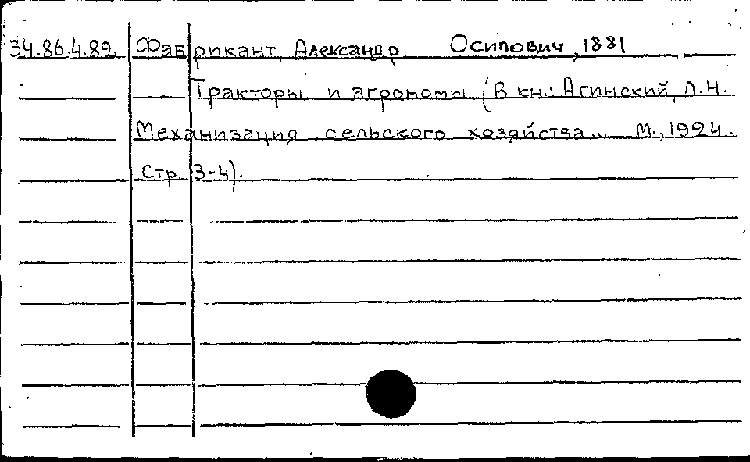 34.86.4.89 Фабрикант, Александр Осипович, 1881
Тракторы и агрономы (В кн.: Агинский, Л.Н.
Механизация сельского хозяйства. М., 1924.
Стр. 3-4).